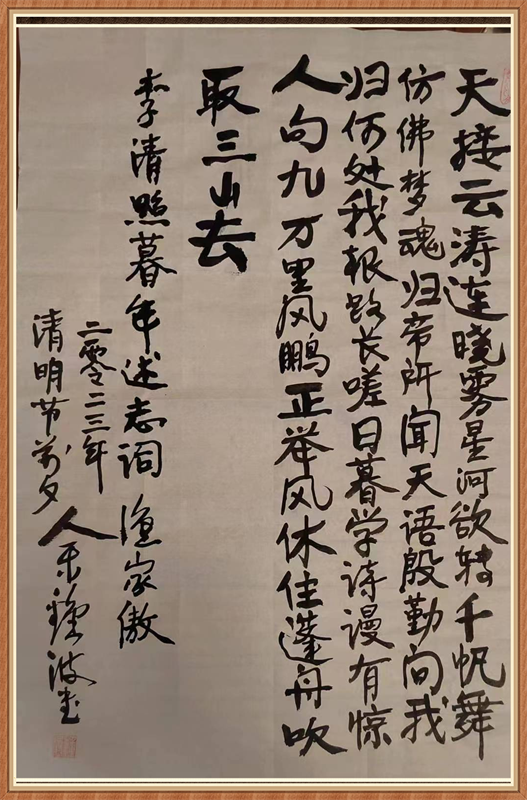 天接云涛连晓雾星河欲转千帆舞
仿佛梦魂归帝所闻天语殷勤问我
归何处我报路长嗟日暮学诗谩有惊
人句九万里风鹏正举风休住蓬舟吹
取三山去
李清照暮年述志词 渔家傲
二零二三年
清明节前夕 人波书